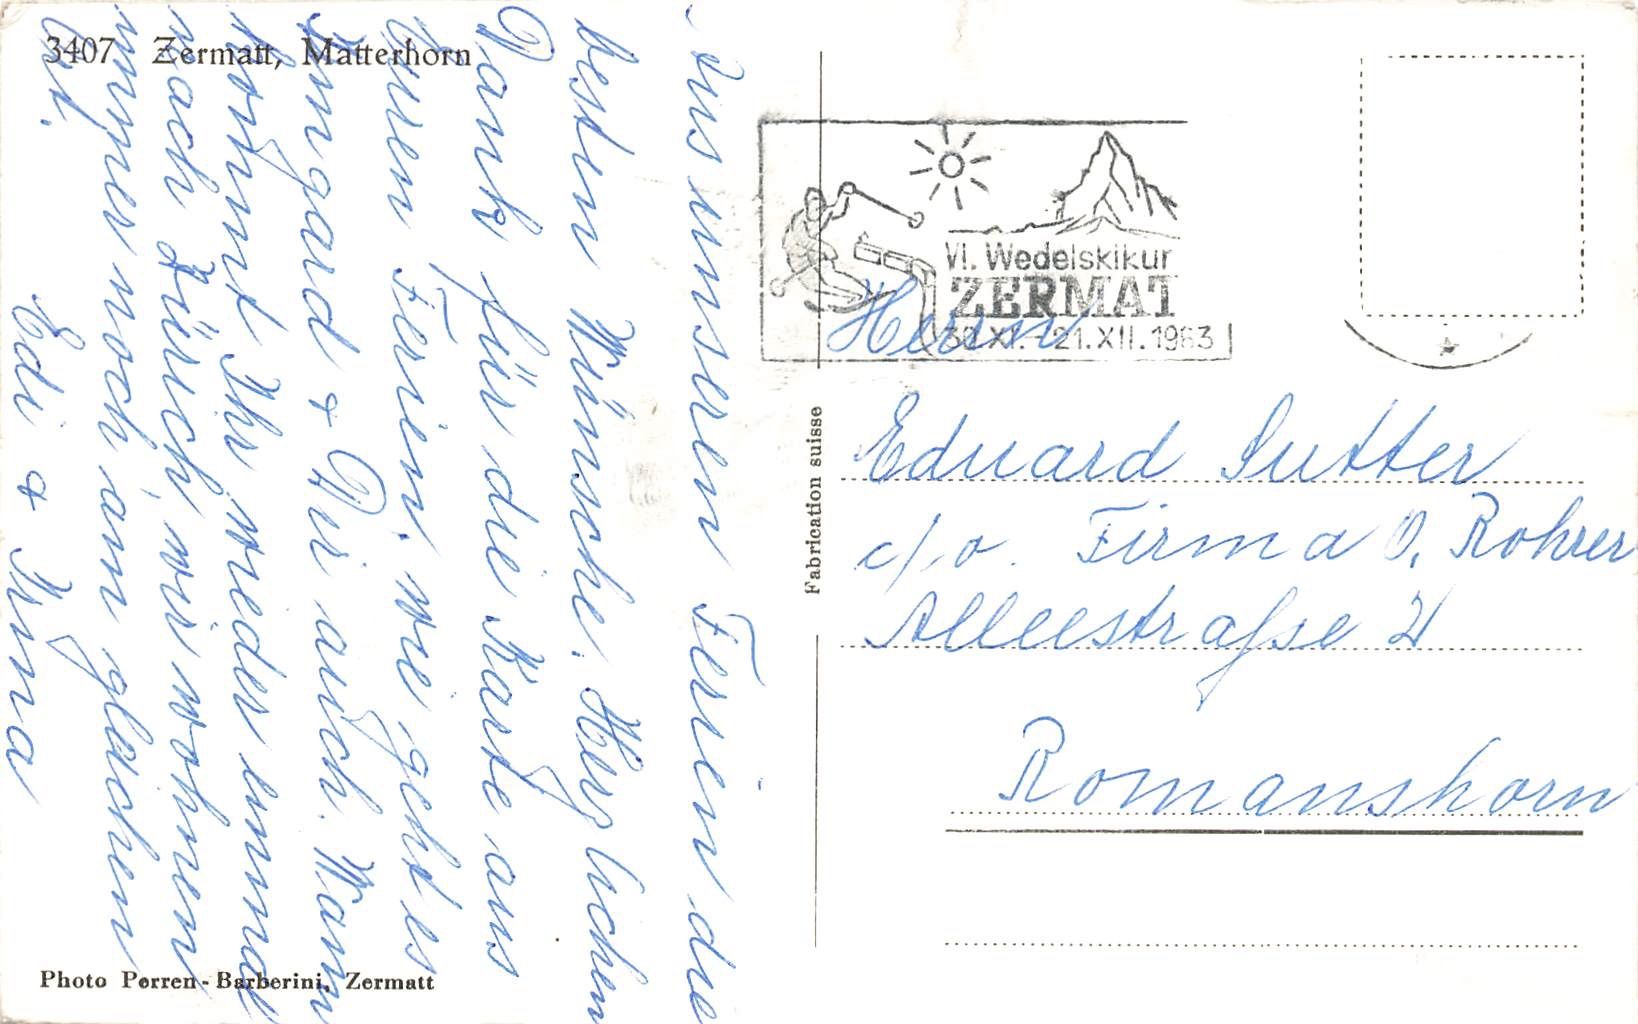 3407 Zermatt, Matterhorn
Aus unseren Ferien die
besten Wünsche. Herzlichen
Dank für die Karte aus
Euren Ferien. wie geht es
Irmgard & Dir auch. Wann
kommt Ihr wieder einmal
nach Zürich, wir wohnen
immer noch am gleichen
Ort.
Edi & Irma
Photo Perren-Barberini, Zermatt
Fabrication suisse
VI. Wedelskikur
ZERMAT
30.XI.-21.XII.1963
Herrn
Eduard Sutter
c/o. Firma O. Rohrer
Alleestraße 21
Romanshorn